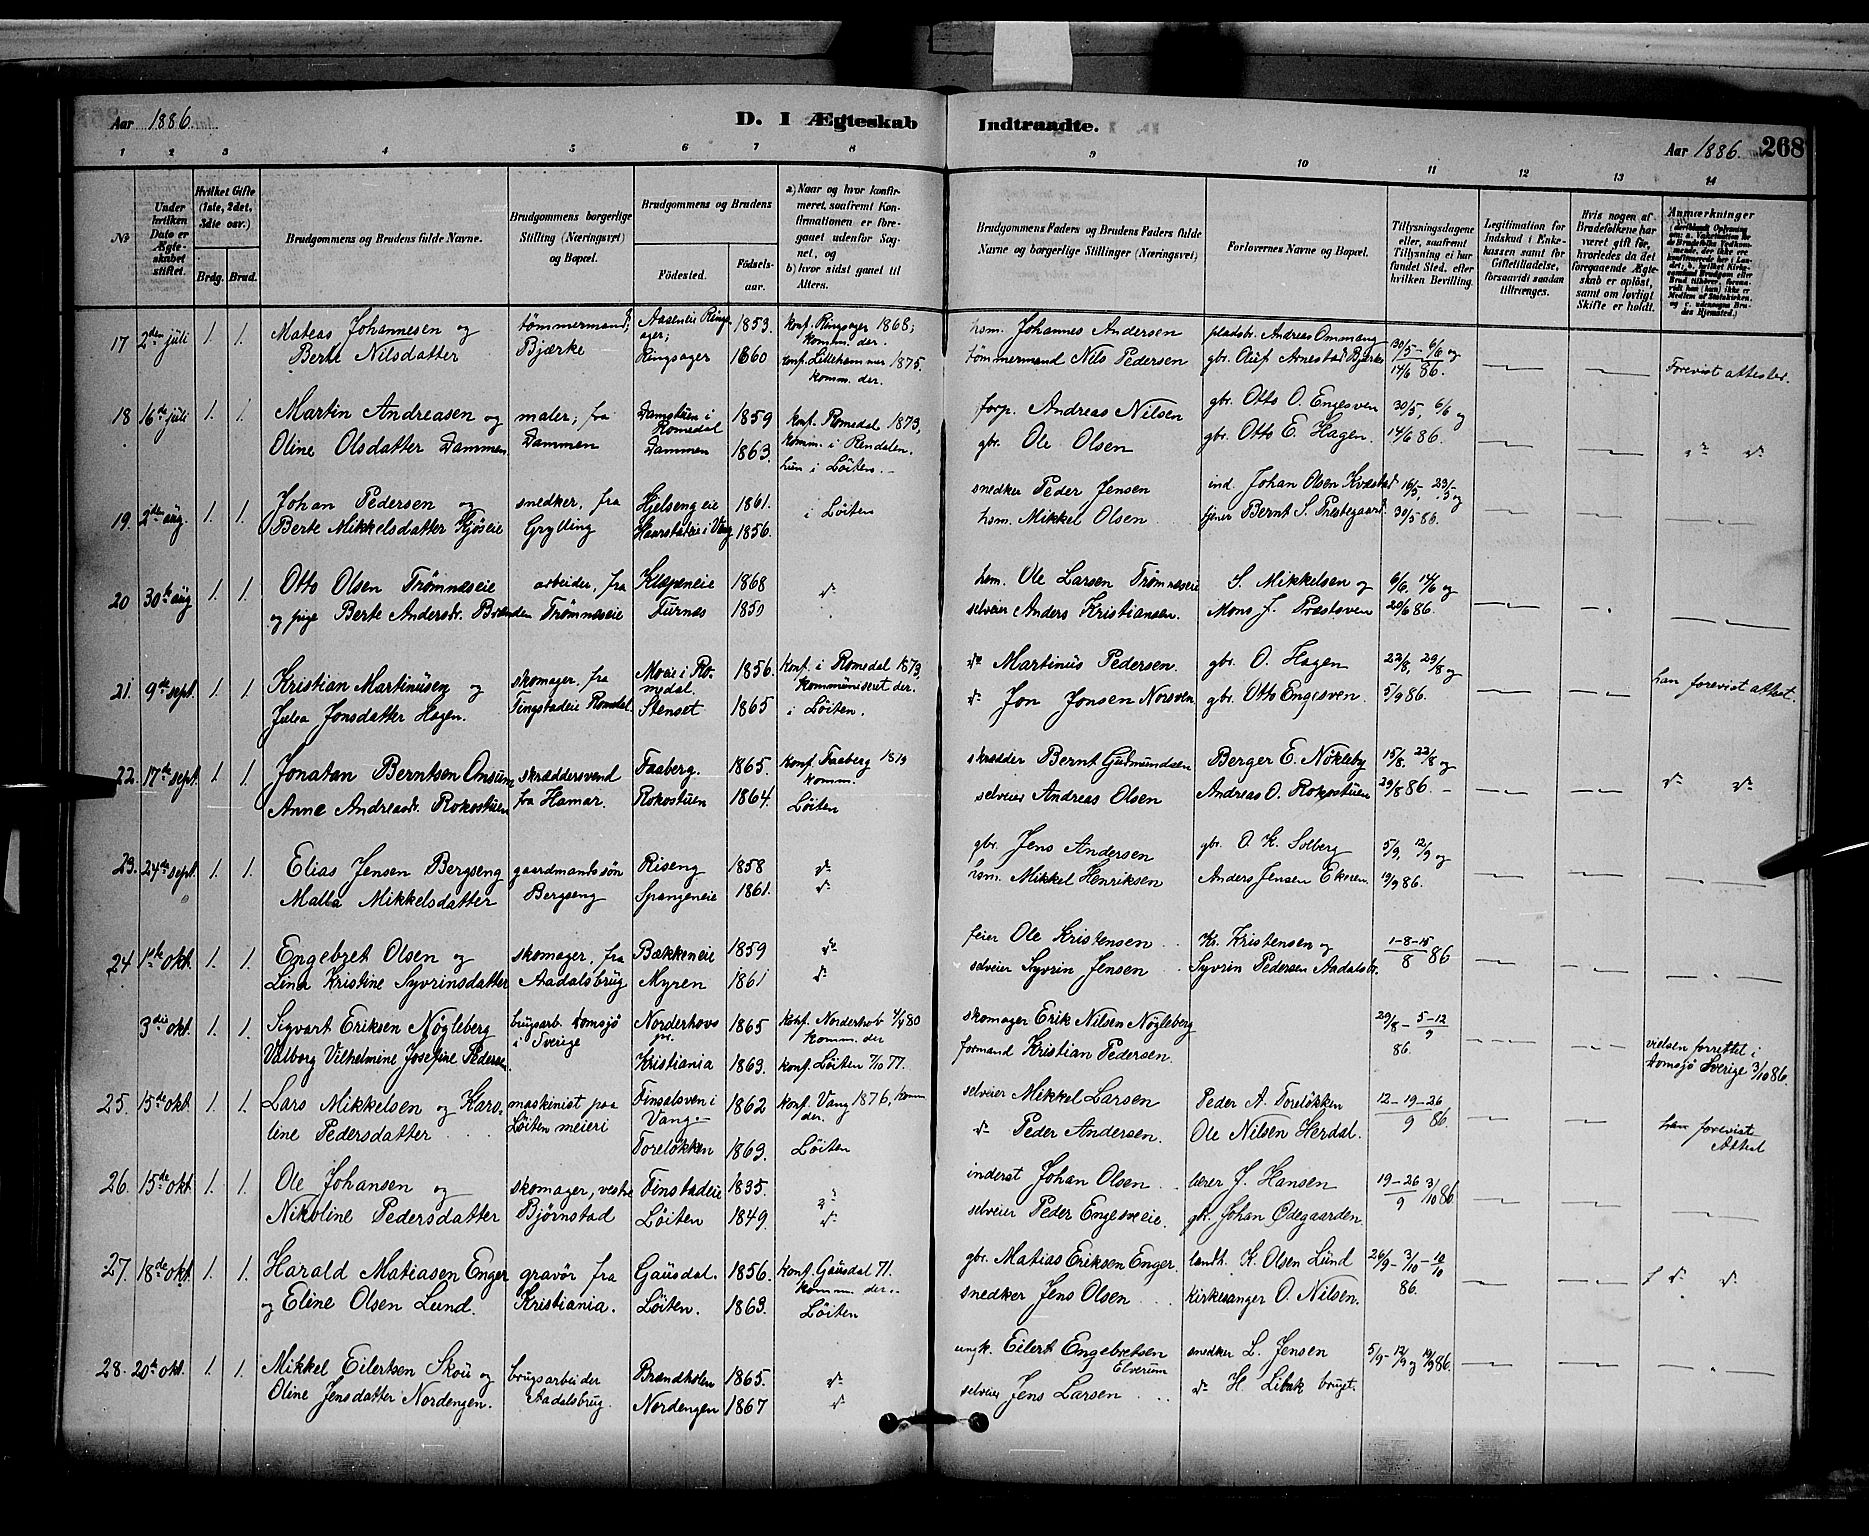 Aar 1886.
D. I Ægteskab
Indtraadte.
Aar 1886.
268
1 2 3 4 5 6 7 8 9 10 11 12 13 14
№
Under hvilken Dato er Ægteskabet stiftet.
Hvilket Gifte (1ste, 2det, 3die osv.)
Brdg. Brud.
Brudgommens og Brudens fulde Navne.
Brudgommens borgerlige Stilling (Næringsvei) og Bopæl.
Brudgommens og Brudens
Fødested.
Fødselsaar.
a) Naar og hvor konfirmeret, saafremt Konfirmationen er foregaaet udenfor Sognet, og
b) hvor sidst gaaet til Alters.
Brudgommens Faders og Brudens Faders fulde Navne og borgerlige Stillinger (Næringsvei)
Forlovernes Navne og Bopæl.
Tillysningsdagene eller, saafremt Tillysning ei har fundet Sted, efter hvilken Bevilling.
Legitimation for Indskud i Enkekassen samt for Giftetilladelse, forsaavidt saadan tiltrænges.
Hvis nogen af Brudefolkene har været gift før, hvorledes da det foregaaende Ægteskab er opløst, samt om lovligt Skifte er holdt.
Anmærkninger
17 2den juli 1. 1. Mateas Johannesen og tømmermand, Aaseneie Ringsager; 1853. konf. Ringsager 1868; komm. der. hsm. Johannes Andersen pladsbr. Andreas Ommang 30/5 - 6/6 og
Berte Nilsdatter Bjærke Ringsager 1860 konf. Lillehammer 1875. komm. der. tømmermand Nils Pedersen gbr. Oluf Arnestad Bjerke 14/6 86. Forevist attester.
18 16de juli 1. 1. Martin Andreasen og maler, fra Damstuen i Romedal 1859 konf. Romedal 1873, forp. Andreas Nilsen gbr. Otto O. Engesven 30/5, 6/6 og
Oline Olsdatter Dammen Dammen Dammen 1863. komm. i Rendalen. hun i Løiten. gbr. Ole Olsen gbr. Otto E. Hagen. 14/6 86.
19. 2den aug. 1. 1. Johan Pedersen og snedker, fra Hjelsengeie 1861. i Løiten snedker Peder Jensen ind. Johan Olsen Kvæstad 16/5, 23/5 og
Berte Mikkelsdatter Gjøseie Grylling Haarstadeie i Vang 1856. hsm. Mikkel Olsen tjener Bernt S. Prestegaard. 30/5 86.
20 30te aug 1. 1. Otto Olsen Trømnæseie arbeider, fra Klæpeneie 1868 hsm. Ole Larsen Trømnæseie S. Mikkelsen og 6/6. 14/6 og
og pige Berte Andersdr. Brænden Trømnæseie Furnæs 1850 selveier Anders Kristiansen. Mons J. Præstsven 20/6 86.
21. 9de sept. 1. 1. Kristian Martinusen og skomager, fra Moeie i Romedal. 1856. konf. i Romedal 1873, kommuniseret der. Martinus Pedersen. gbr. O. Hagen 22/8, 29/8 og han forevist attest.
Julia Jonsdatter Hagen. Tingstadeie Romdal Stenset 1865 i Løiten. Jon Jonsen Norsven gbr. Otto Engesven. 5/9 86.
22. 17de sept. 1. 1. Jonatan Berntsen Onsum skræddersvend Faaberg. 1865. konf. Faaberg 1879 komm. skrædder Bernt Gudmundsen Berger E. Nøkleby 15/8. 22/8 og
Anne Andreasdr. Rokostuen fra Hamar. Rokostuen 1864. Løiten selveier Andreas Olsen Andreas O. Rokostuen 29/8 86.
23. 24de sept. 1. 1. Elias Jensen Bergseng gaardmandssøn Riseng 1858 gbr. Jens Andersen gbr. O. K. Solberg 5/9, 12/9 og
Malla Mikkelsdatter Bergseng Spangeneie 1861. hsm. Mikkel Henriksen Anders Jensen Ekeren. 19/9 86.
24 1ste okt. 1. 1. Engebret Olsen og skomager, fra Bækkeneie 1859 feier Ole Kristensen Kr. Kristensen og 1-8-15/8 86
Lina Kristine Syvrinsdatter Aadalsbrug Myren 1861 selveier Syvrin Jensen Syvrin Pedersen Aadalsbr.
3die okt. 1. 1. Sigvart Eriksen Nøgleberg brugsarb. Domsjø Norderhovs 1865 konf. Norderhov 4/4 80 komm. der skomager Erik Nilsen Nøgleberg 29/8 - 5-12/9
Valborg Vilhelmine Josefine Pedersen. i Sverige Kristiania 1863. konf. Løiten 7/10 77. formand Kristian Pedersen. 86. vielsen forrettet i Domsjø Sverige 3/10 86.
25. 15de okt. 1. 1. Lars Mikkelsen og Karo- maskinist paa Finsalsven i Vang 1862 konf. Vang 1876, komm der. selveier Mikkel Larsen Peder A. Toreløkken 12-19-26/9 86. han forevist Attest
line Pedersdatter Løiten meieri Toreløkken 1863. Løiten Peder Andersen. Ole Nilsen Herdal.
26. 15de okt. 1. 1. Ole Johansen og skomager, vestre Finstadeie 1835. inderst Johan Olsen lærer J. Hansen 19-26/9 3/10 86
Nikoline Pedersdatter Bjørnstad Løiten 1849. selveier Peder Engesveeie. gbr. Johan Ødegaarden.
27. 18de okt. 1. 1. Harald Matiasen Enger gravør fra Gausdal. 1856. konf. Gausdal 71. komm. der. gbr. Matias Eriksen Enger. landh. K. Olsen Lund 26/9 - 3/10 - 10/10
og Eline Olsen Lund. Kristiania. Løiten. 1863. Løiten snedker Jens Olsen kirkesanger O. Nilsen. 86.
28. 20de okt. 1. 1. Mikkel Eilertsen Skou og brugsarbeider Brændholen 1865. ungk. Eilert Engebretsen Elverum snedker L. Jensen 5/9 - 12/9 og 19/9 86.
Oline Jensdatter Nordengen. Aadalsbrug. Nordengen 1867 selveier Jens Larsen H. Libak brugt.